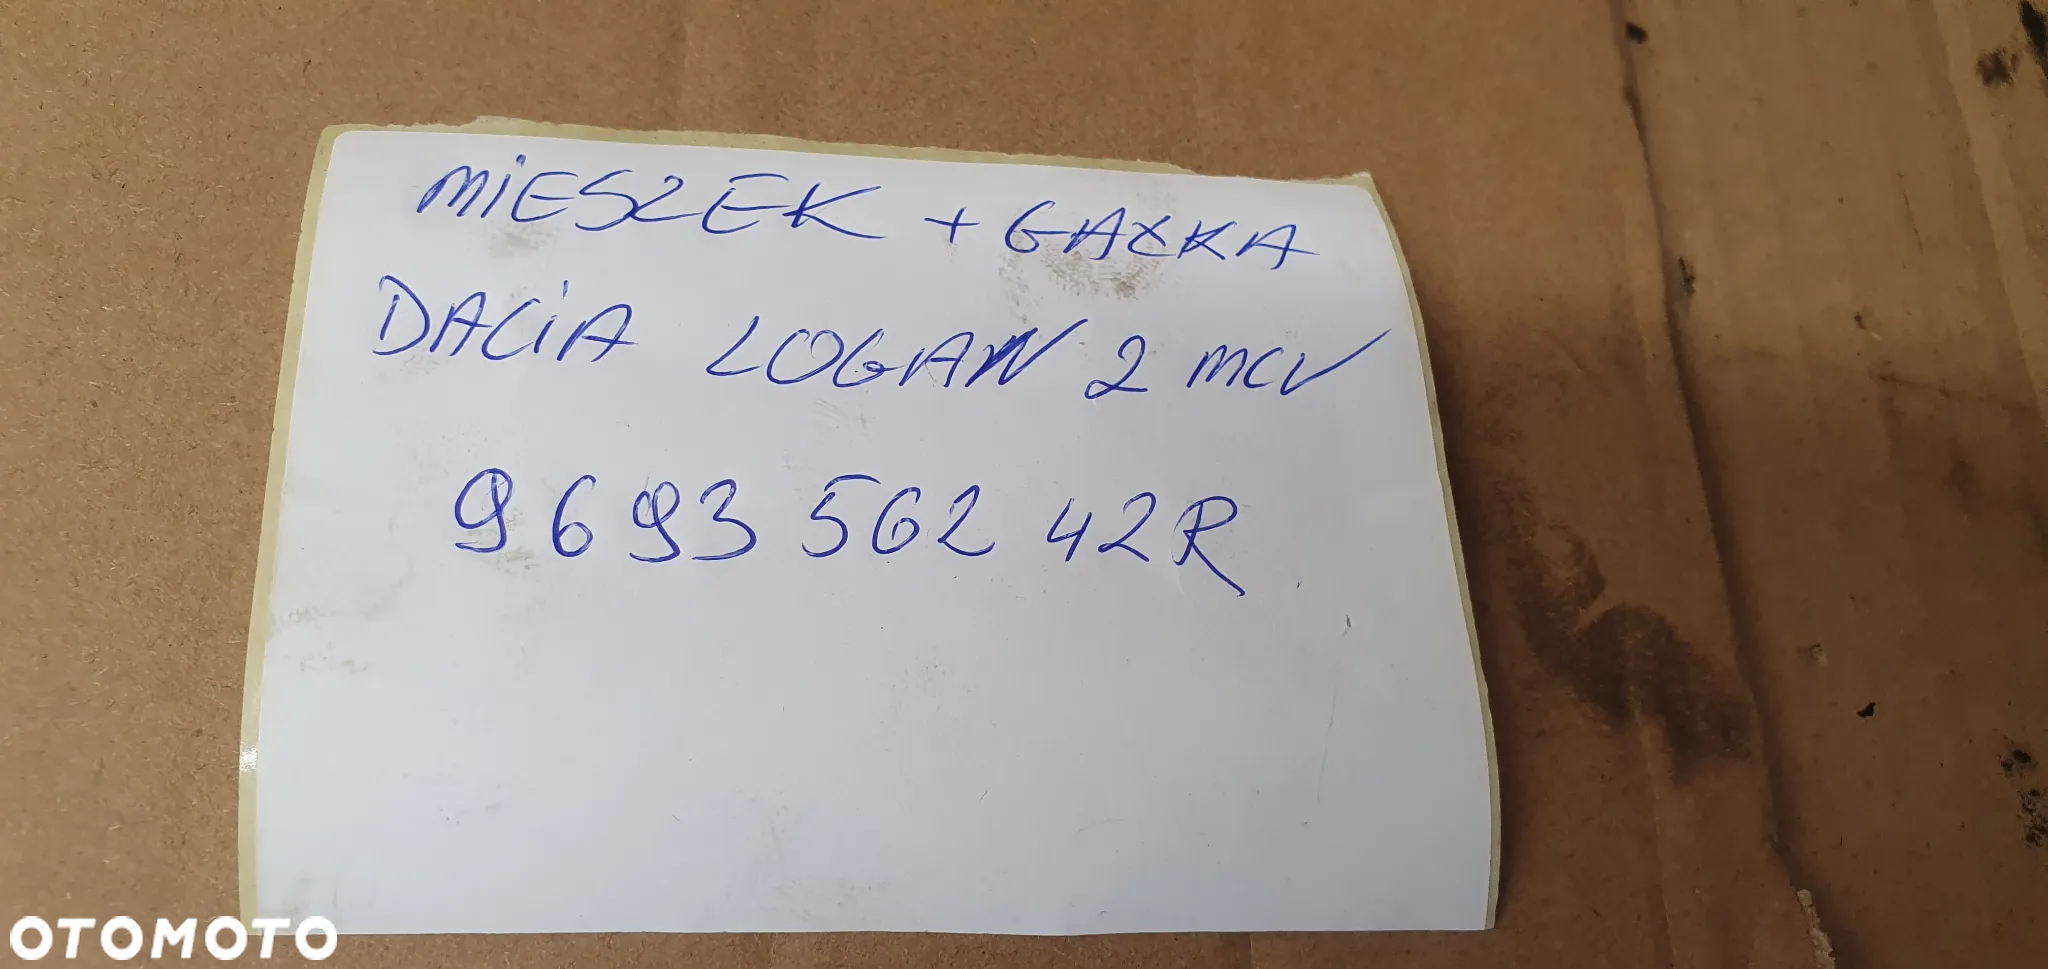 MIESZEK + GAŁKA
DACIA LOGAN 2 MCV
9693 562 42R
OTOMOTO